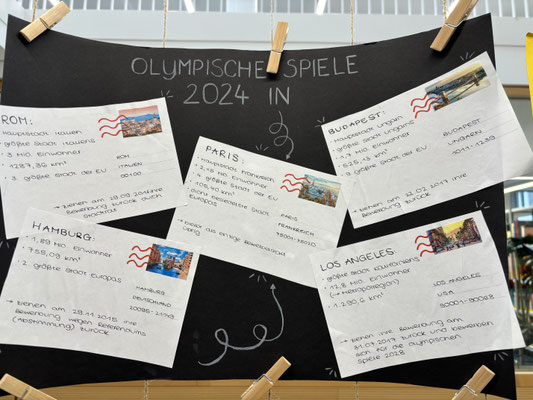 OLYMPISCHE SPIELE
2024 IN
ROM:
• Hauptstadt Italien
• größte Stadt Italiens
• 3 Mio Einwohner
• 1287,36 km²
• 3. größte Stadt der EU
ROM
ITALIEN
00100
→ ziehen am
Bewerbung durch
zurück
PARIS:
• Hauptstadt Frankreich
• Mio Einwohner
• größte Stadt der EU
• 105,40 km²
Stadt
Europas
PARIS
FRANKREICH
übrig
BUDAPEST:
• Hauptstadt Ungarn
• größte Stadt Ungarns
• 1,7 Mio Einwohner
• 525,13 km²
• Stadt der EU
BUDAPEST
UNGARN
1011-1239
→ ziehen am 22.02.2017 ihre
Bewerbung zurück
HAMBURG:
• 1,89 Mio Einwohner
• 755,09 km²
• 2. größte Stadt Europas
HAMBURG
DEUTSCHLAND
→ ziehen am 29.11.2015 ihre
Bewerbung wegen Referendums
(Abstimmung) zurück
LOS ANGELES:
• größte Stadt Kaliforniens
• 12,8 Mio Einwohner
(→ Metropolregion)
• 1.290,6 km²
LOS ANGELES
USA
90001-90068
→ ziehen ihre Bewerbung am
31.07.2017 zurück und bewerben
sich für die olympischen
Spiele 2028